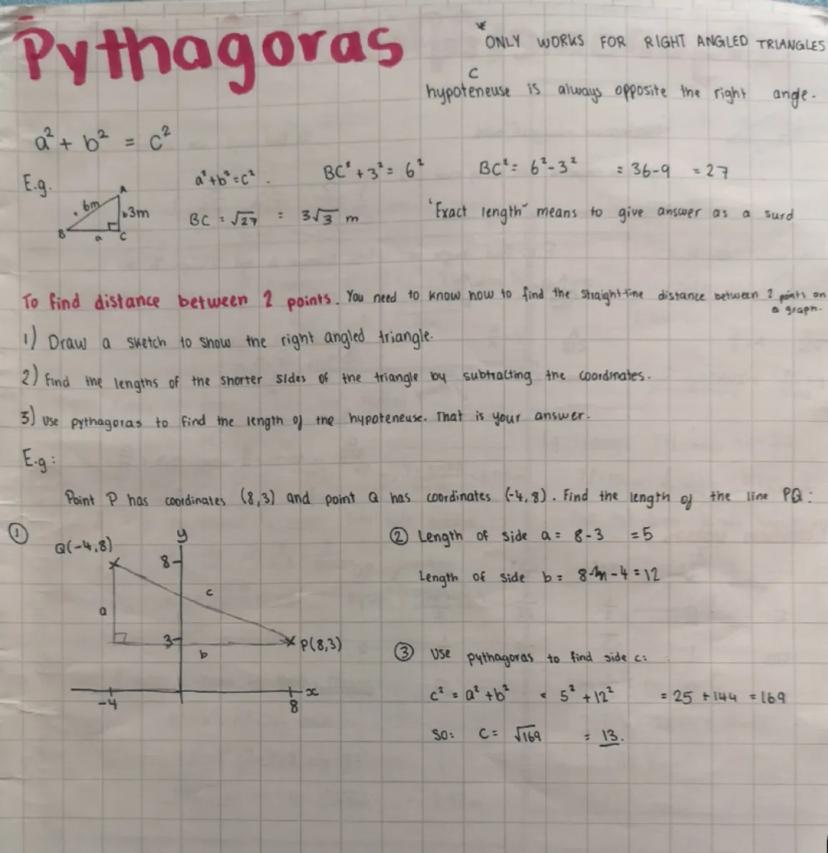 Pythagoras
* ONLY WORKS FOR RIGHT ANGLED TRIANGLES
C
hypoteneuse is always opposite the right angle.
a² + b² = c²
E.g.
A
6m
3m
B
a
C
a²+b²=c².
BC² + 3² = 6²
BC² = 6²-3² = 36-9 = 27
BC = √27 = 3√3 m
"Exact length" means to give answer as a surd
To find distance between 2 points. You need to know how to find the straight-line distance between 2 points on
a graph.
1) Draw a sketch to show the right angled triangle.
2) Find the lengths of the shorter sides of the triangle by subtracting the coordinates.
3) Use pythagoras to find the length of the hypoteneuse. That is your answer.
E.g:
Point P has coordinates (8,3) and point Q has coordinates (-4,8). Find the length of the line PQ:
①
Q(-4,8)
y
8
c
a
3
P(8,3)
b
x
-4
8
② Length of side a = 8-3 = 5
Length of side b = 8 - -4 = 12
③ Use pythagoras to find side c:
c² = a² + b² = 5² + 12² = 25 + 144 = 169
So: C = √169 = 13.